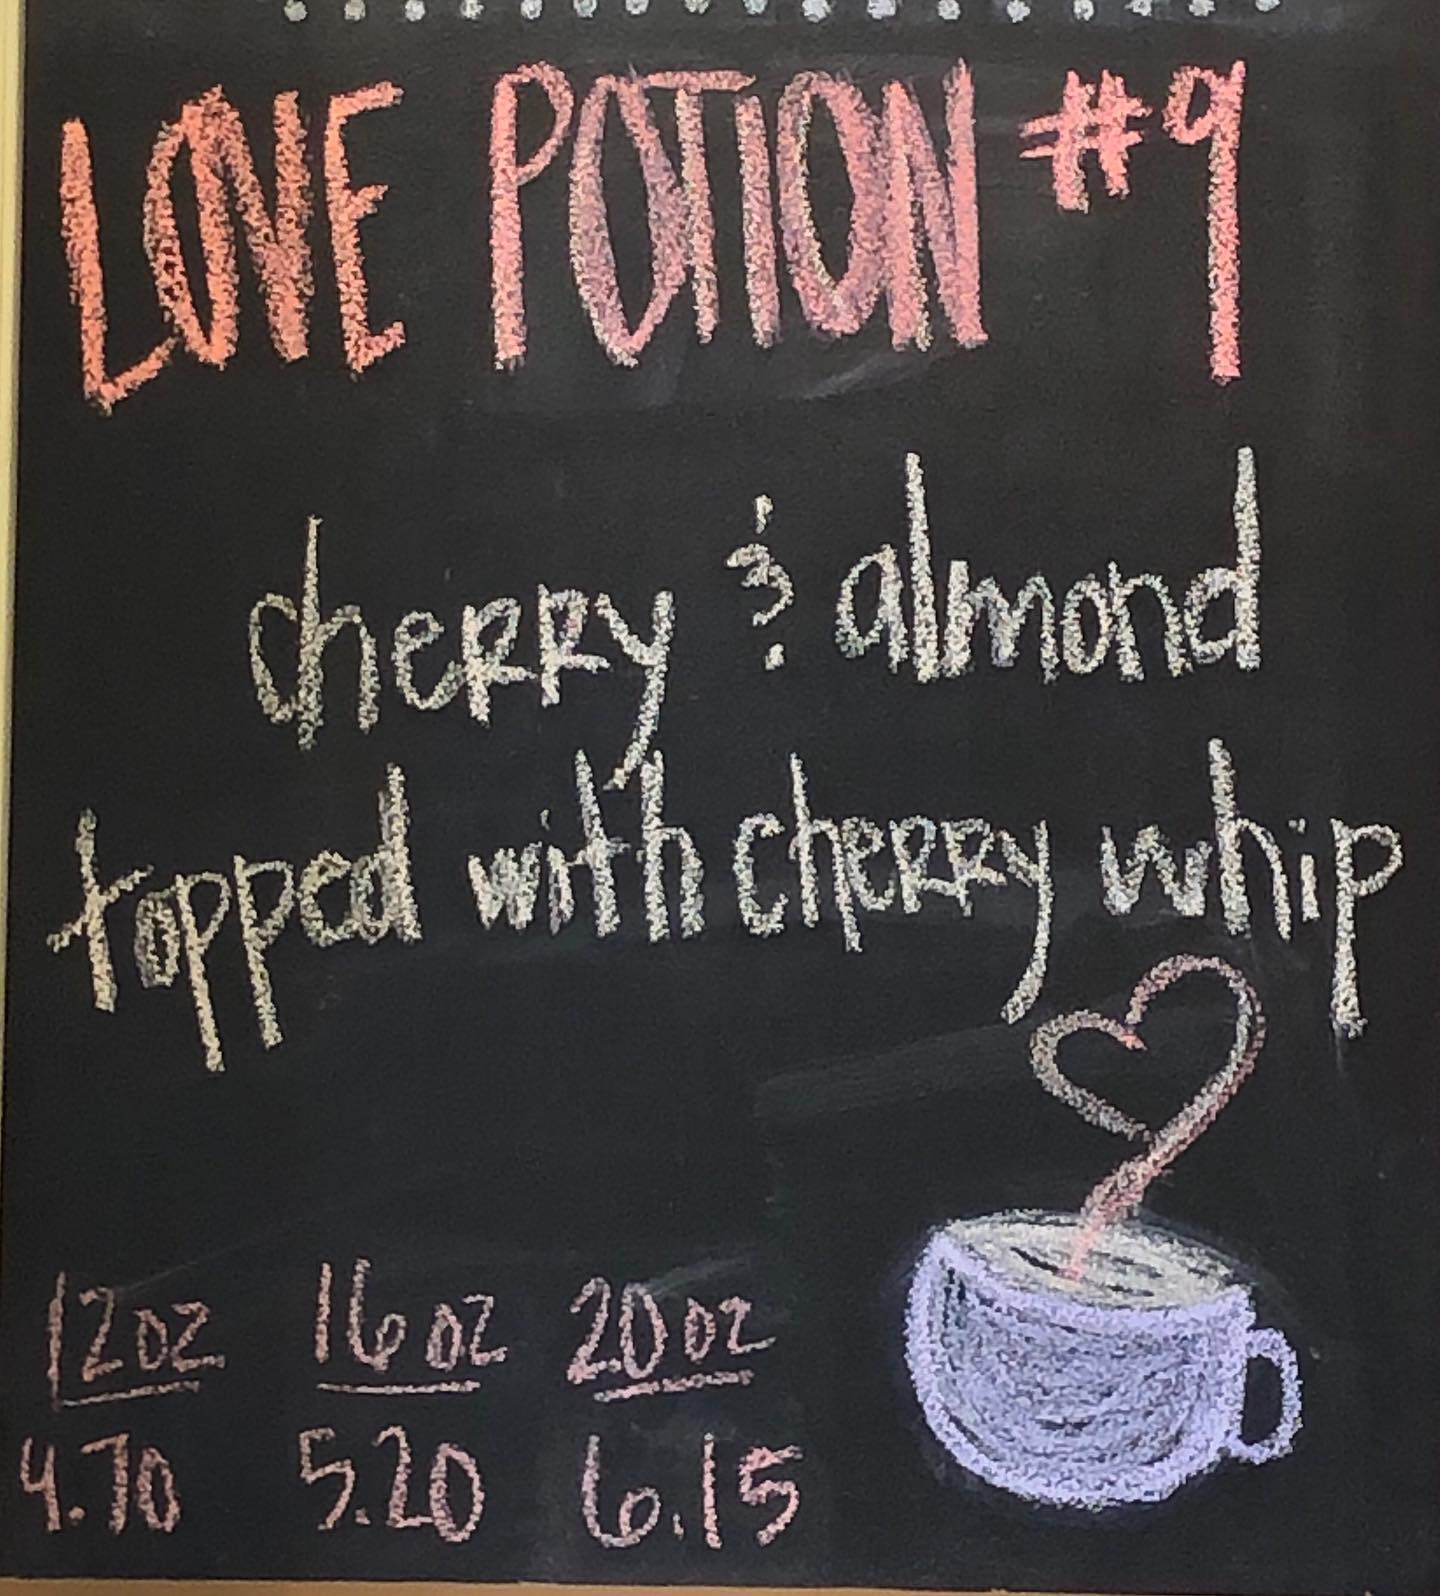 LOVE POTION #9
cherry & almond
topped with cherry whip
12oz 16oz 20oz
4.70 5.20 6.15